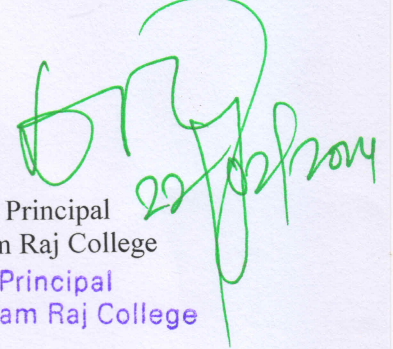 22/02/2014
Principal
m Raj College
Principal
am Raj College